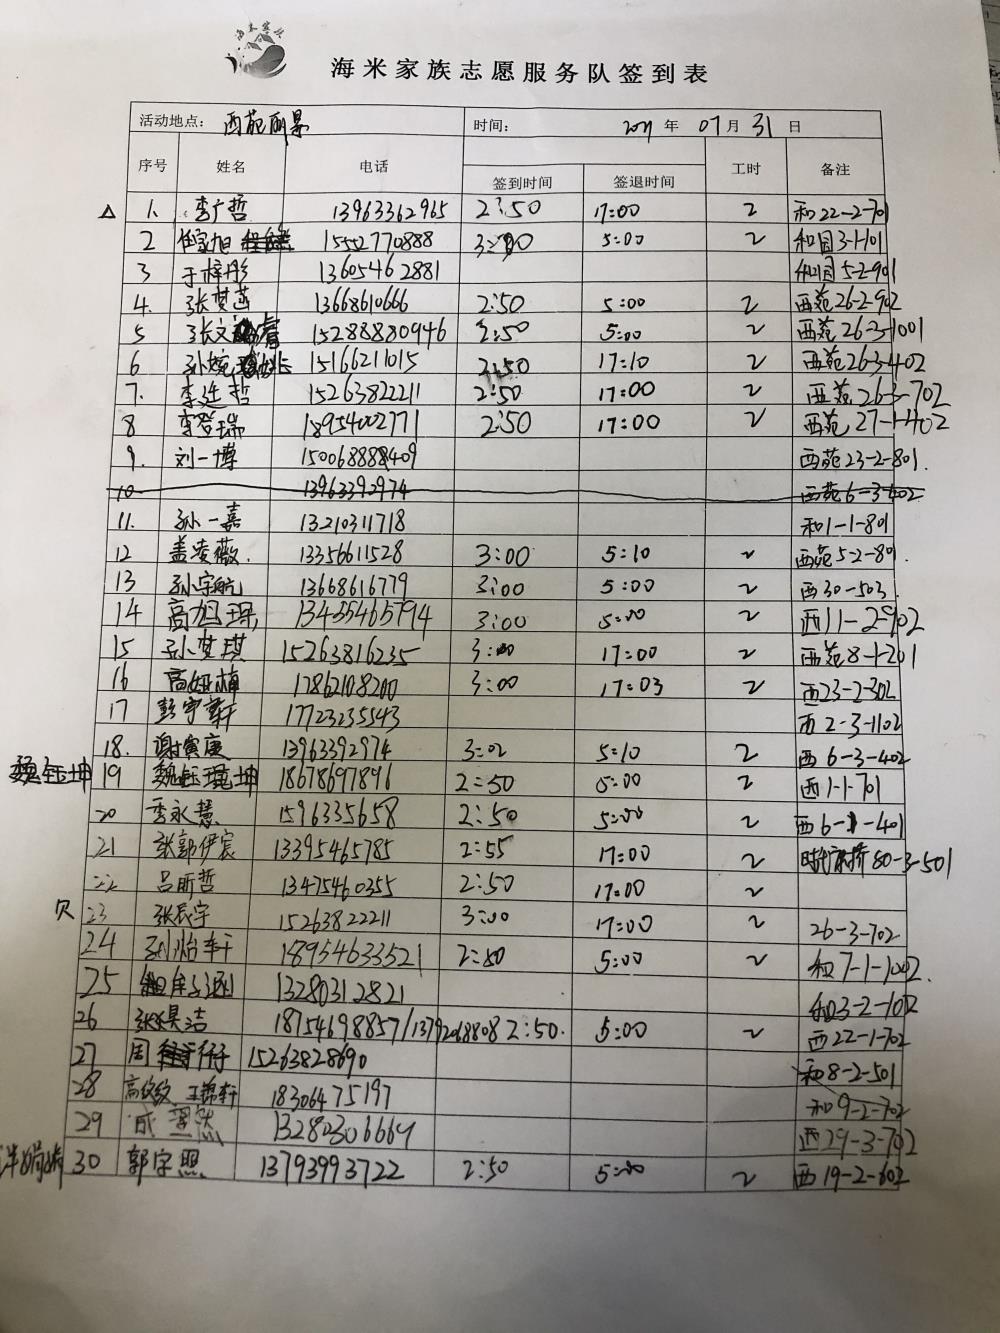 海米家族
海米家族志愿服务队签到表
活动地点: 西苑丽景 时间: 年 07月 31 日
序号 姓名 电话 签到时间 签退时间 工时 备注
1. 李广哲 13963362965 2:50 17:00 2 和22-2-701
2 旭 15552770888 3:00 5:00 2 和园3-1-101
3 于梓彤 13605462881 和园5-2-901
4. 张梦菡 13668610666 2:50 5:00 2 西苑26-2-902
5 张文睿 15288880946 2:50 5:00 2 西苑26-3-1001
6 孙婉 15166211015 2:50 17:10 2 西苑26-3-402
7. 李廷哲 15263822211 2:50 17:00 2 西苑26-3-702
8 李登瑞 18954002771 2:50 17:00 2 西苑27-1-402
9. 刘一博 西苑23-2-801.
10 13963392974 西苑6-3-402
11. 孙一嘉 13210311718 和1-1-801
12 盖凌薇. 13356611528 3:00 5:10 2 西苑5-2-801.
13 孙宇航 13668616779 3:00 5:00 2 西30-503.
14 高旭琛 13455465794 3:00 5:00 2 西11-2-902
15 孙梦琪 15263816235 3:00 17:00 2 西苑8-1-201
16 高 17862108200 3:00 17:03 2 西23-2-302
17 彭宇轩 17723235543 西2-3-1102
18. 谢寅庚 13963392974 3:02 5:10 2 西6-3-402
魏钰坤 19 魏钰坤 18678697896 2:50 5:00 2 西1-1-701
20 李永慧 1596335658 2:50 5:00 2 西6-1-401
21 张郭伊宸 13395465785 2:55 17:00 2 80-3-501
22 吕昕哲 13475460355 2:50 17:00 2
23 张辰宇 15263822211 3:00 17:00 2 26-3-702
24 刘怡轩 18954633521 2:50 5:00 2 和7-1-1002.
25 13280312821 和3-2-102
26 张昊洁 18754698857/13792068808 2:50. 5:00 2 西22-1-702
27 周 15263828690 和8-2-501
28 高 王锦轩 18306475197 和9-2-702
29 成 13280306664 西29-3-702
30 郭宇照 13793993722 2:50 5:00 2 西19-2-602